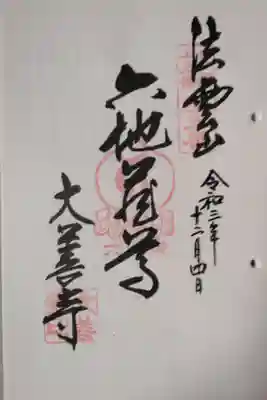 法雲山
令和三年
十二月四日
六地蔵尊
大善寺